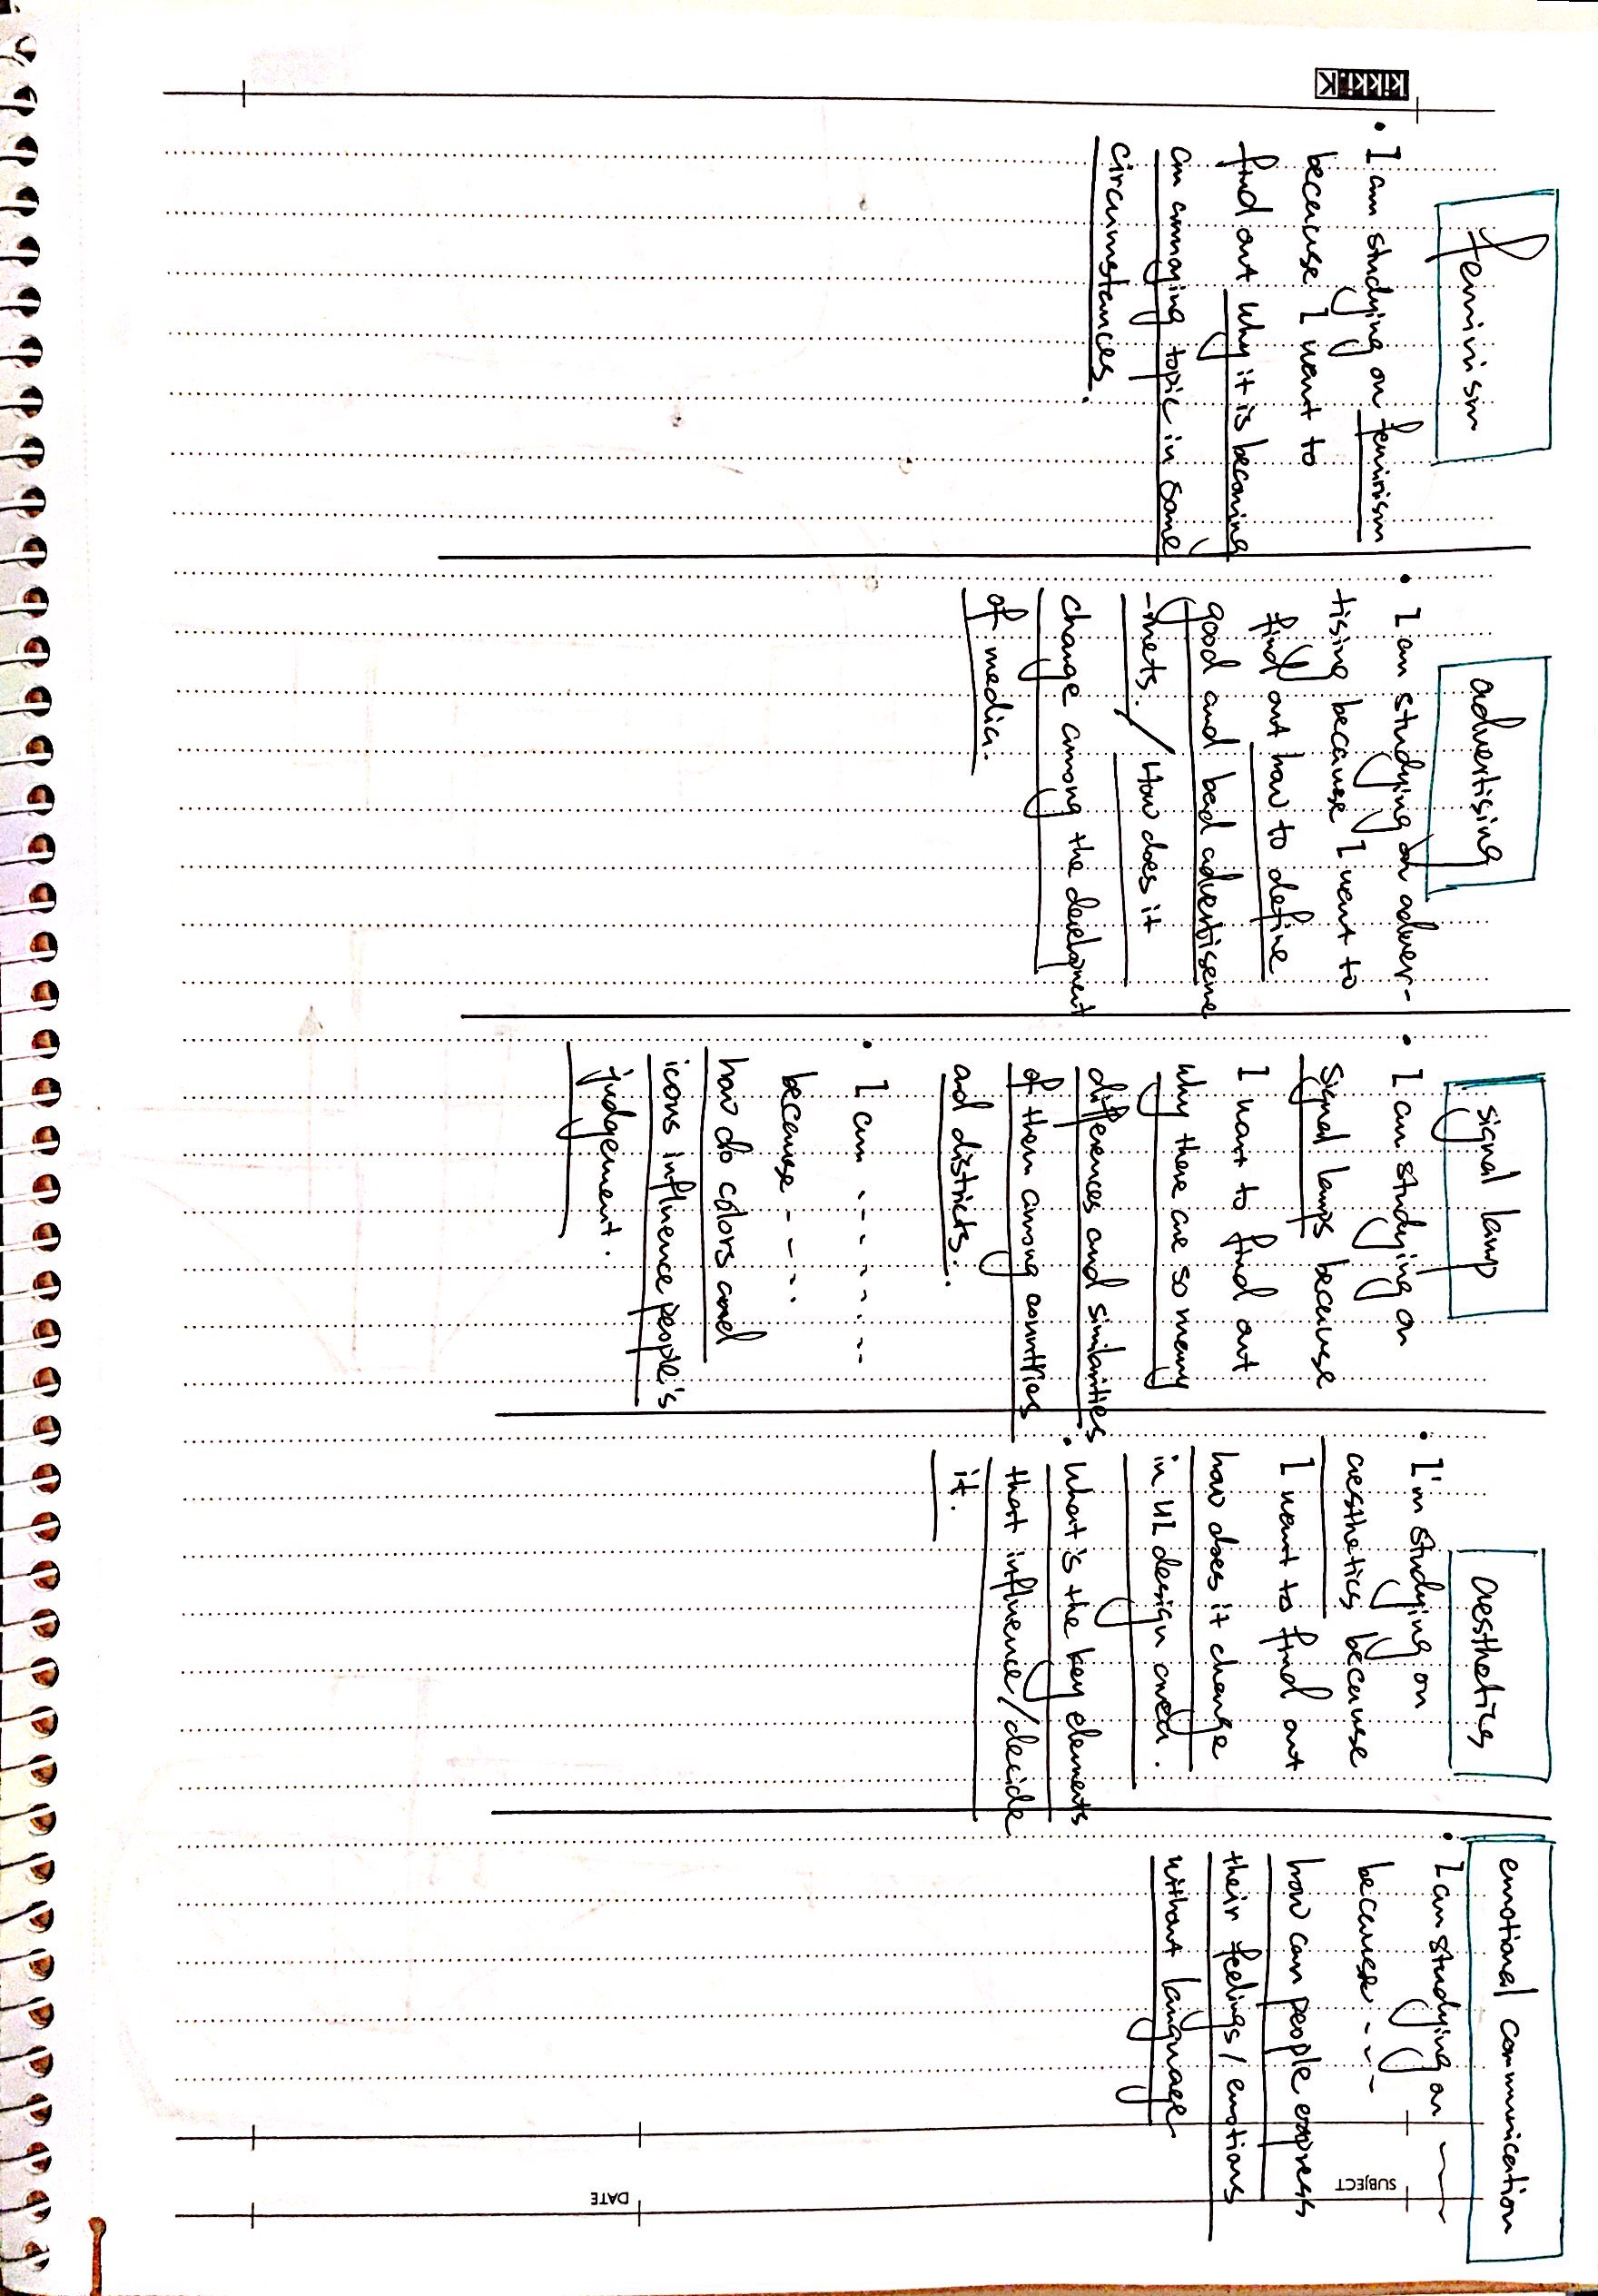 kikki.K
feminism
• I am studying on feminism
because I want to
find out why it is becoming
an annoying topic in some
circumstances.
advertising
• I am studying on adver-
tising because I want to
find out how to define
good and bad advertiseme
-nets. / How does it
change among the development
of media.
signal lamp
• I am studying on
signal lamps because
I want to find out
why there are so many
differences and similarities
of them among countries
and districts.
• I am .......
because - - - ..
how do colors and
icons influence people's
judgement.
aesthetics
• I'm studying on
aesthetics because
I want to find out
how does it change
in UI design area.
• What's the key elements
that influence/decide
it.
emotional communication
• I am studying on ~~
because - - - -
how can people express
their feelings / emotions
without language
SUBJECT
DATE